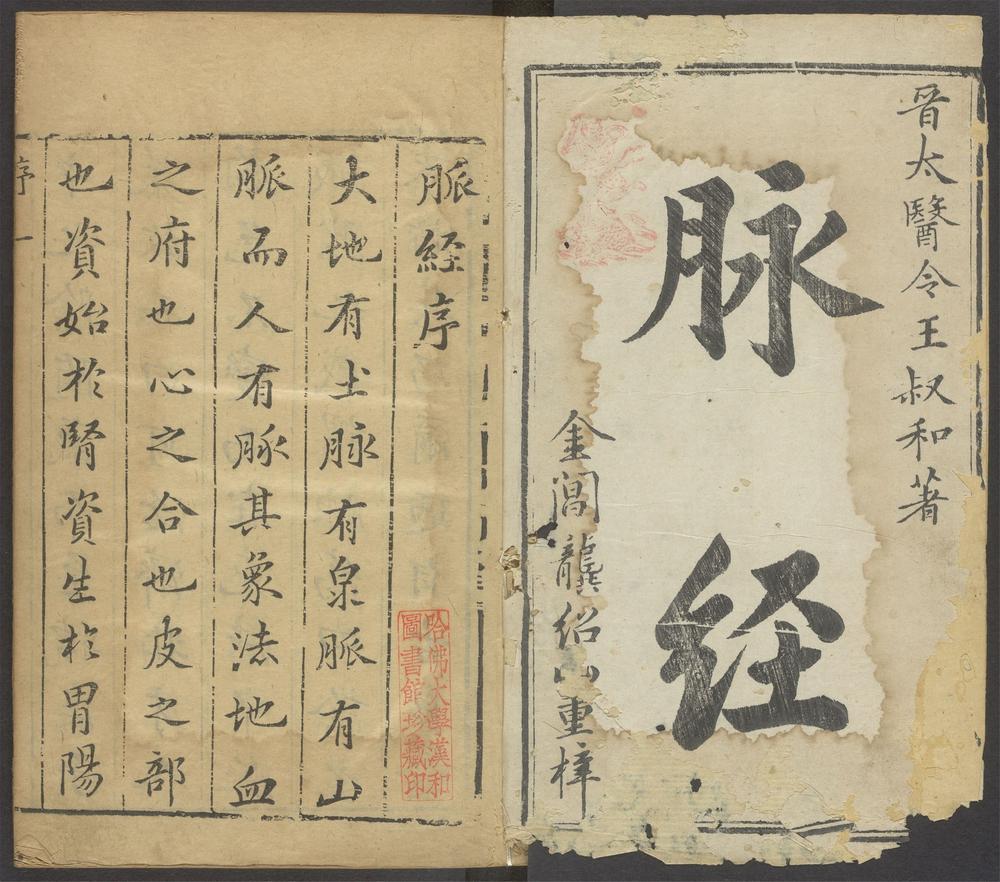 晉太醫令王叔和著
脉经
金閶龔绍山重梓
脈经序
大地有土脉有泉脈有山
脈而人有脉其象法地血
之府也心之合也皮之部
也資始於腎資生於胃陽
序 一
哈佛大學漢和
圖書館珍藏印